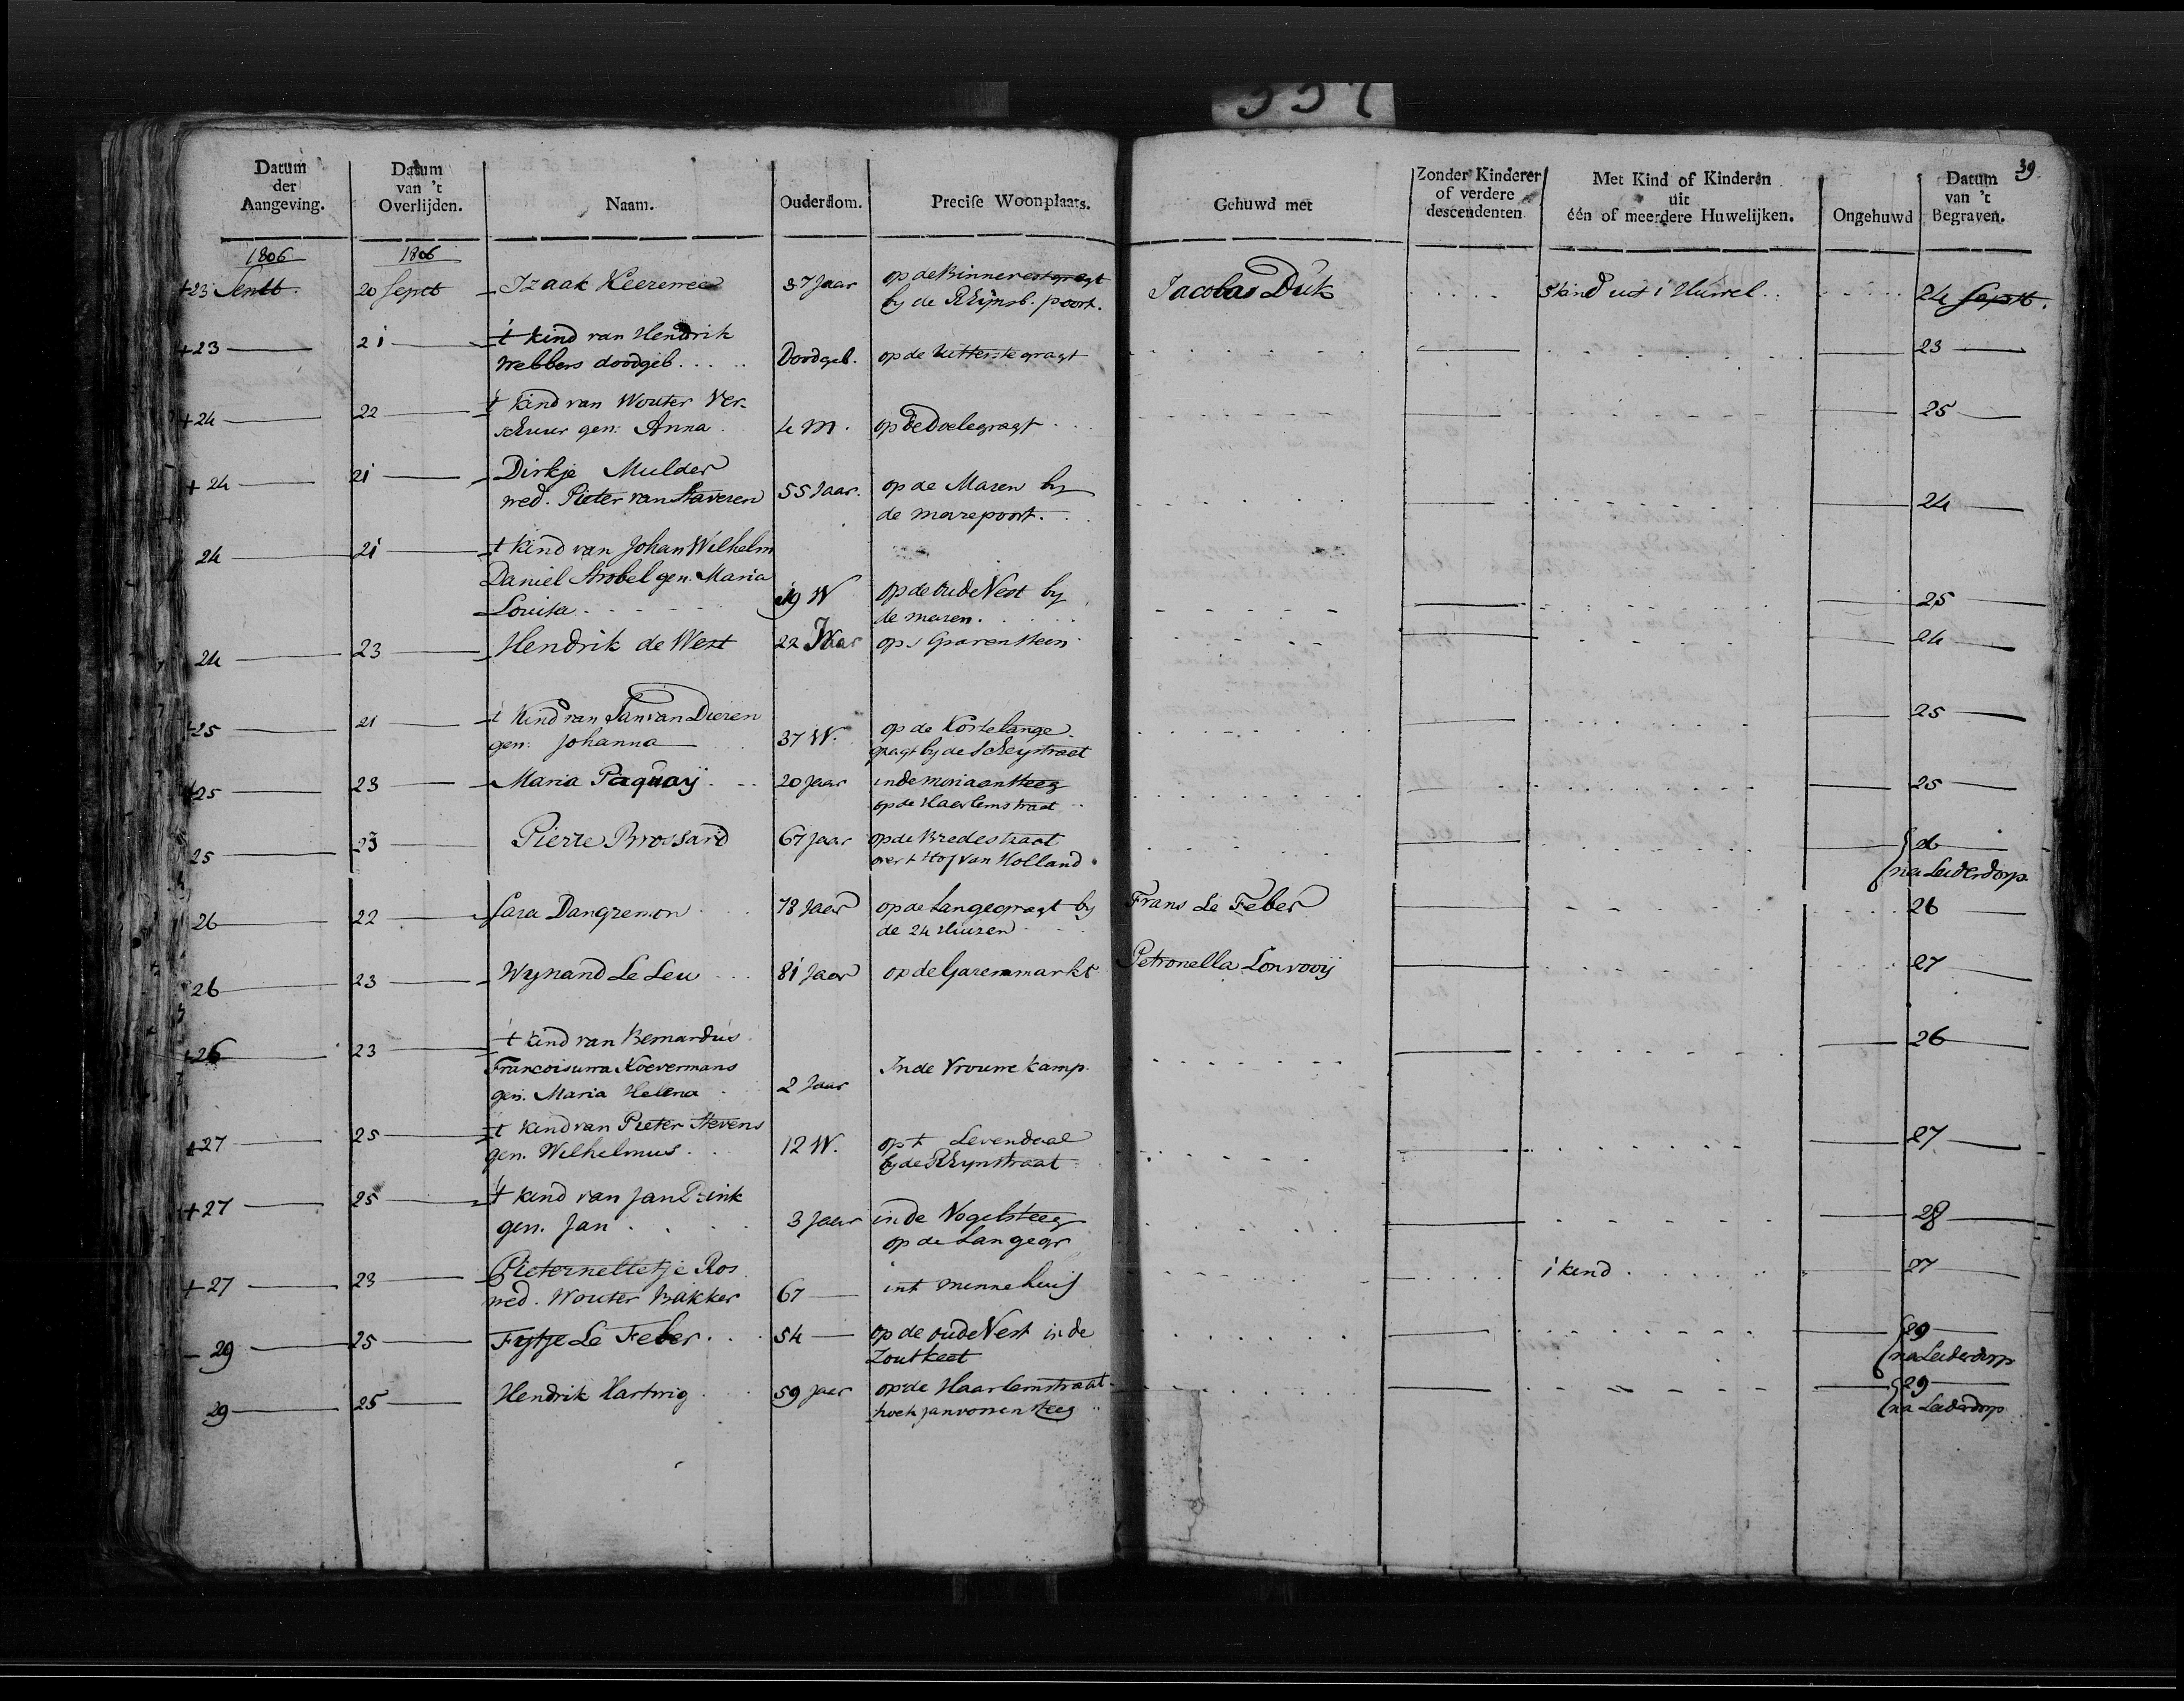 39
Datum der Aangeving. Datum van 't Overlijden. Naam. Ouderdom. Precise Woonplaats. Gehuwd met Zonder Kinderen of verdere descendenten Met Kind of Kinderen uit één of meerdere Huwelijken. Ongehuwd Datum van 't Begraven.
1806 1806
+23 Septb. 20 Septb Izaak 37 Jaar op de Binnevestgragt Jacoba Duk 5 kind uit 1 Huwel. 24 Septb.
by de Rhijnsb. poort.
+23 21 't kind van Hendrik
Webbers doodgeb. Doodgeb. op de Uitterstegragt 23
+24 22 't kind van Wouter Ver-
schuur gen: Anna 4 M. op de Doelegragt 25
+24 21 Dirkje Mulder
wed. Pieter van Staveren 55 Jaar. op de Maren by 24
de marepoort.
24 21 't kind van Johan Wilhelm
Daniel Strobel gen. Maria
Louisa 19 W op de oude Vest by 25
de maren.
24 23 Hendrik de West 22 Jaar op 's Gravensteen 24
+25 21 't kind van Jan van Dieren
gen: Johanna 37 W. op de Korte lange- 25
gragt by de Scheystraat
+25 23 Maria Paquaij 20 Jaar in de moriaansteeg 25
op de Haarlemstraat
25 23 Pierre Brossard 67 Jaar op de Bredestraat do
over 't Hof van Holland na Leiderdorp
26 22 Sara Dangremon 78 Jaar op de Langegragt by Frans Le Feber 26
de 24 Huizen
26 23 Wynand Le Leu 81 Jaar op de Garenmarkt Petronella Lonvooij 27
+26 23 't kind van Bernardus
Koevermans
gen. Maria Helena 2 Jaar In de Vrouwe kamp. 26
+27 25 't kind van Pieter Stevens
gen. Wilhelmus 12 W. op 't Levendaal 27
by de Rhynstraat
+27 25 't kind van Jan Rink
gen. Jan 3 Jaar in de Vogelsteeg 28
op de Langegr
+27 23 Pieternelletje Ros
wed. Wouter Bakker 67 int minnehuis 1 kind 27
29 25 Fytje Le Feber 54 op de oude Vest in de 29
Zoutkeet na Leiderdorp
29 25 Hendrik Hartwig 59 Jaar op de Haarlemstraat 29
hoek janvossensteeg na Leiderdorp